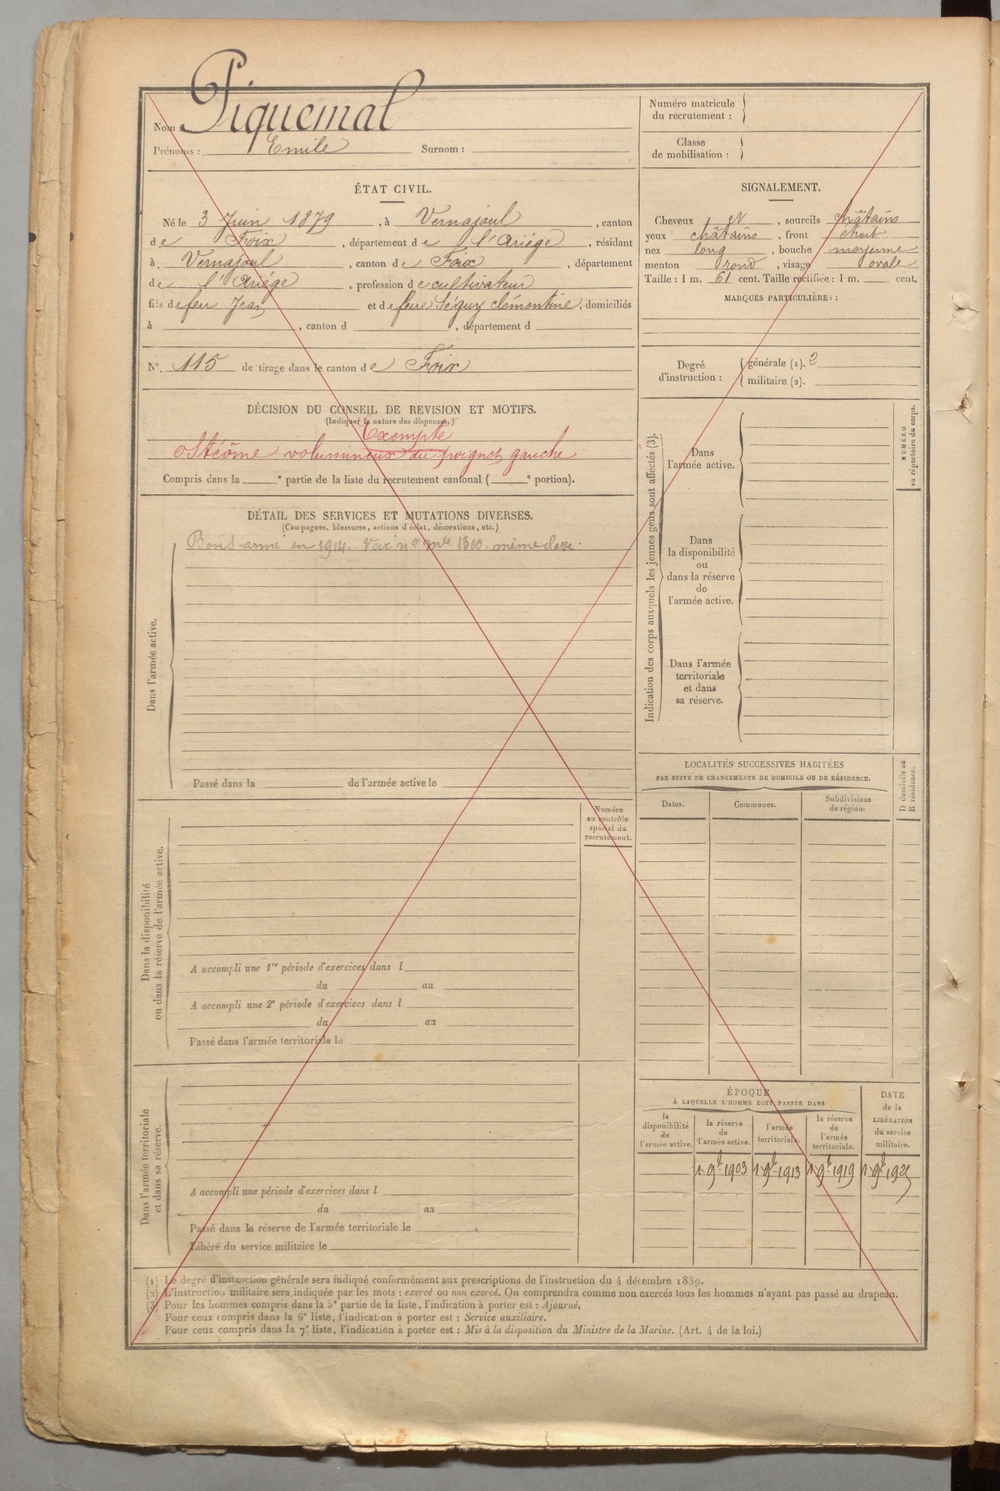 Nom : Piquemal
Prénoms : Emile Surnom :
Numéro matricule
du recrutement :
Classe
de mobilisation :
ÉTAT CIVIL.
Né le 3 Juin 1879, à Vernajoul, canton
de Foix, département de l'Ariège, résidant
à Vernajoul, canton de Foix, département
de l'Ariège, profession de cultivateur
fils de feu Jean et de feue Séguy Clémentine, domiciliés
à , canton d , département d
N° 115 de tirage dans le canton de Foix
SIGNALEMENT.
Cheveux et, sourcils châtains
yeux châtains, front étroit
nez long, bouche moyenne
menton rond, visage ovale
Taille : 1 m. 61 cent. Taille rectifiée : 1 m. cent.
MARQUES PARTICULIÈRES :
Degré
d'instruction :
générale (1). 2
militaire (2).
DÉCISION DU CONSEIL DE REVISION ET MOTIFS.
(Indiquer la nature des dispenses.)
Exempté
ostéome volumineux du poignet gauche
Compris dans la e partie de la liste du recrutement cantonal ( e portion).
DÉTAIL DES SERVICES ET MUTATIONS DIVERSES.
(Campagnes, blessures, actions d'éclat, décorations, etc.)
Bon s. armé en 1914. Voir n° mle 1360 même classe.
Dans l'armée active.
Passé dans la de l'armée active le
Indication des corps auxquels les jeunes gens sont affectés (3).
Dans
l'armée active.
Dans
la disponibilité
ou
dans la réserve
de
l'armée active.
Dans l'armée
territoriale
et dans
sa réserve.
NUMÉRO
au répertoire du corps.
LOCALITÉS SUCCESSIVES HABITÉES
PAR SUITE DE CHANGEMENTS DE DOMICILE OU DE RÉSIDENCE.
Dates.
Communes.
Subdivisions
de région.
D domicile ou
R résidence.
Dans la disponibilité
ou dans la réserve de l'armée active.
Numéro
au contrôle
spécial du
recrutement.
A accompli une 1re période d'exercices dans l
du au
A accompli une 2e période d'exercices dans l
du au
Passé dans l'armée territoriale le
Dans l'armée territoriale
et dans sa réserve.
A accompli une période d'exercices dans l
du au
Passé dans la réserve de l'armée territoriale le
Libéré du service militaire le
ÉPOQUE
À LAQUELLE L'HOMME DOIT PASSER DANS
la
disponibilité
de
l'armée active.
la réserve
de
l'armée active.
l'armée
territoriale.
la réserve
de
l'armée
territoriale.
DATE
de la
LIBÉRATION
du service
militaire.
1 9b 1903 1 9b 1913 1 9b 1919 1 9b 1925
(1) Le degré d'instruction générale sera indiqué conformément aux prescriptions de l'instruction du 4 décembre 1889.
(2) L'instruction militaire sera indiquée par les mots : exercé ou non exercé. On comprendra comme non exercés tous les hommes n'ayant pas passé au drapeau.
(3) Pour les hommes compris dans la 5e partie de la liste, l'indication à porter est : Ajourné.
Pour ceux compris dans la 6e liste, l'indication à porter est : Service auxiliaire.
Pour ceux compris dans la 7e liste, l'indication à porter est : Mis à la disposition du Ministre de la Marine. (Art. 4 de la loi.)